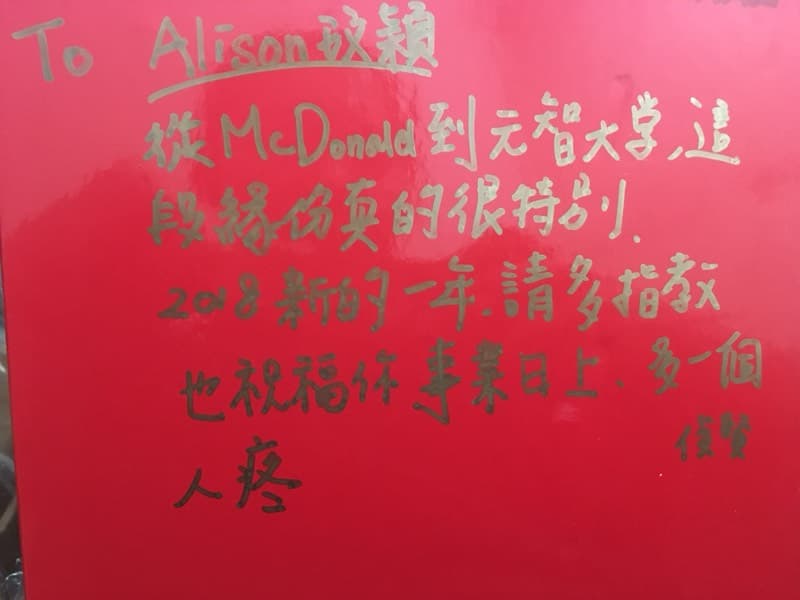 To Alison 玟穎
從McDonald到元智大学,這
段緣份真的很特別.
2018新的一年.請多指教
也祝福你事業日上、多一個
人疼